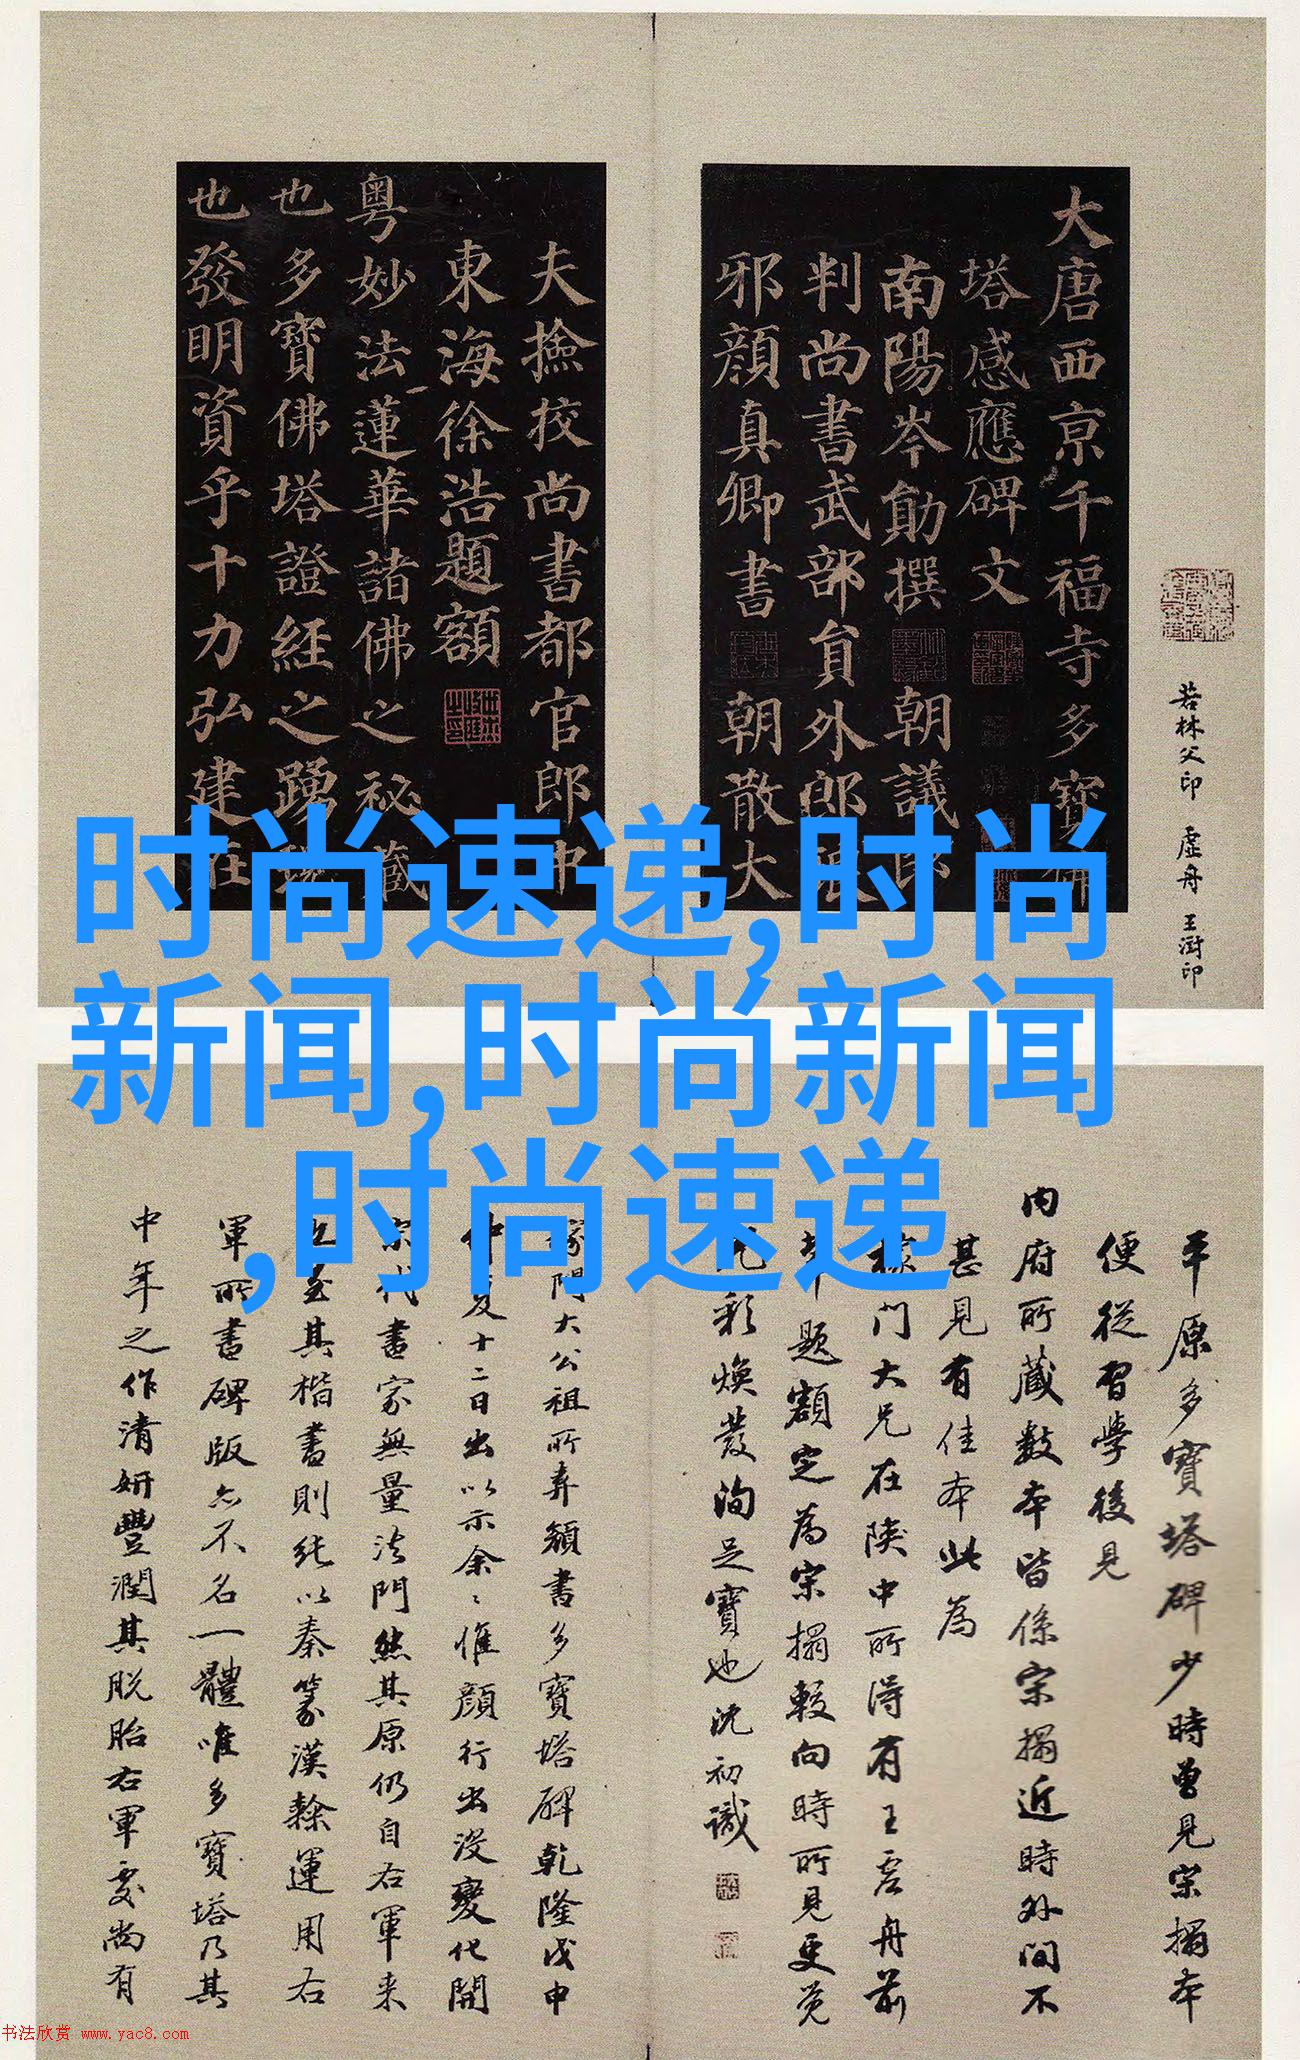 大唐西京千福寺多寶佛
塔感應碑文
南陽岑勛撰 朝議郎
判尚書武部員外郎琅
邪顏真卿書 朝散大
夫撿挍尚書都官郎中
東海徐浩題額
粵妙法蓮華諸佛之祕藏
也多寶佛塔證經之踴現
也發明資乎十力弘建在
若林父印 虛舟 王澍印
时尚速递,时尚
新闻,时尚新闻
,时尚速递
平原多寶塔碑少時曾見宋搨本
便從習學後見
內府所藏數本皆係宋搨近時外間不
甚見有佳本此為
門大兄在陝中所得有王虛舟前
題額定為宋搨較向時所見更覺
彩煥發洵足寶也沈初識
門大公祖所弆顏書多寶塔碑乾隆戊申
仲夏十二日出以示余〻惟顏行出沒變化開
宗代書家無量法門然其原仍自右軍来
其楷書則純以秦篆漢隸運用右
軍所書碑版亦不名一體唯多寶塔乃其
中年之作清妍豐潤其脫胎右軍處尚有
书法欣赏 www.yac8.com